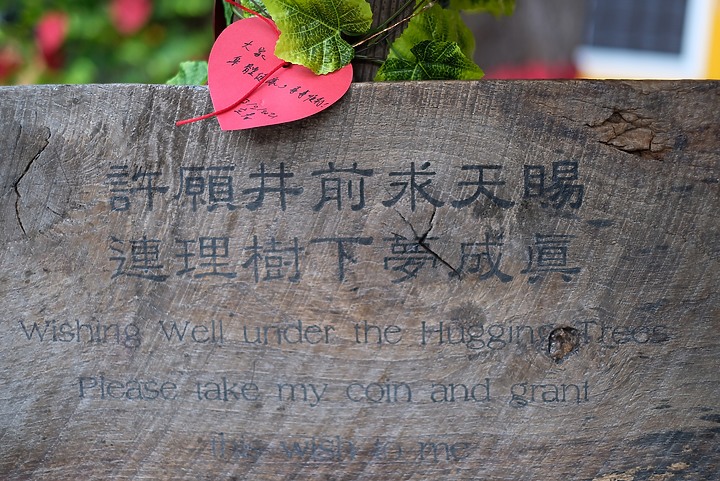 大家
許願井前求天賜
連理樹下夢成眞
Wishing Well under the Hugging Trees
Please take my coin and grant
this wish to me